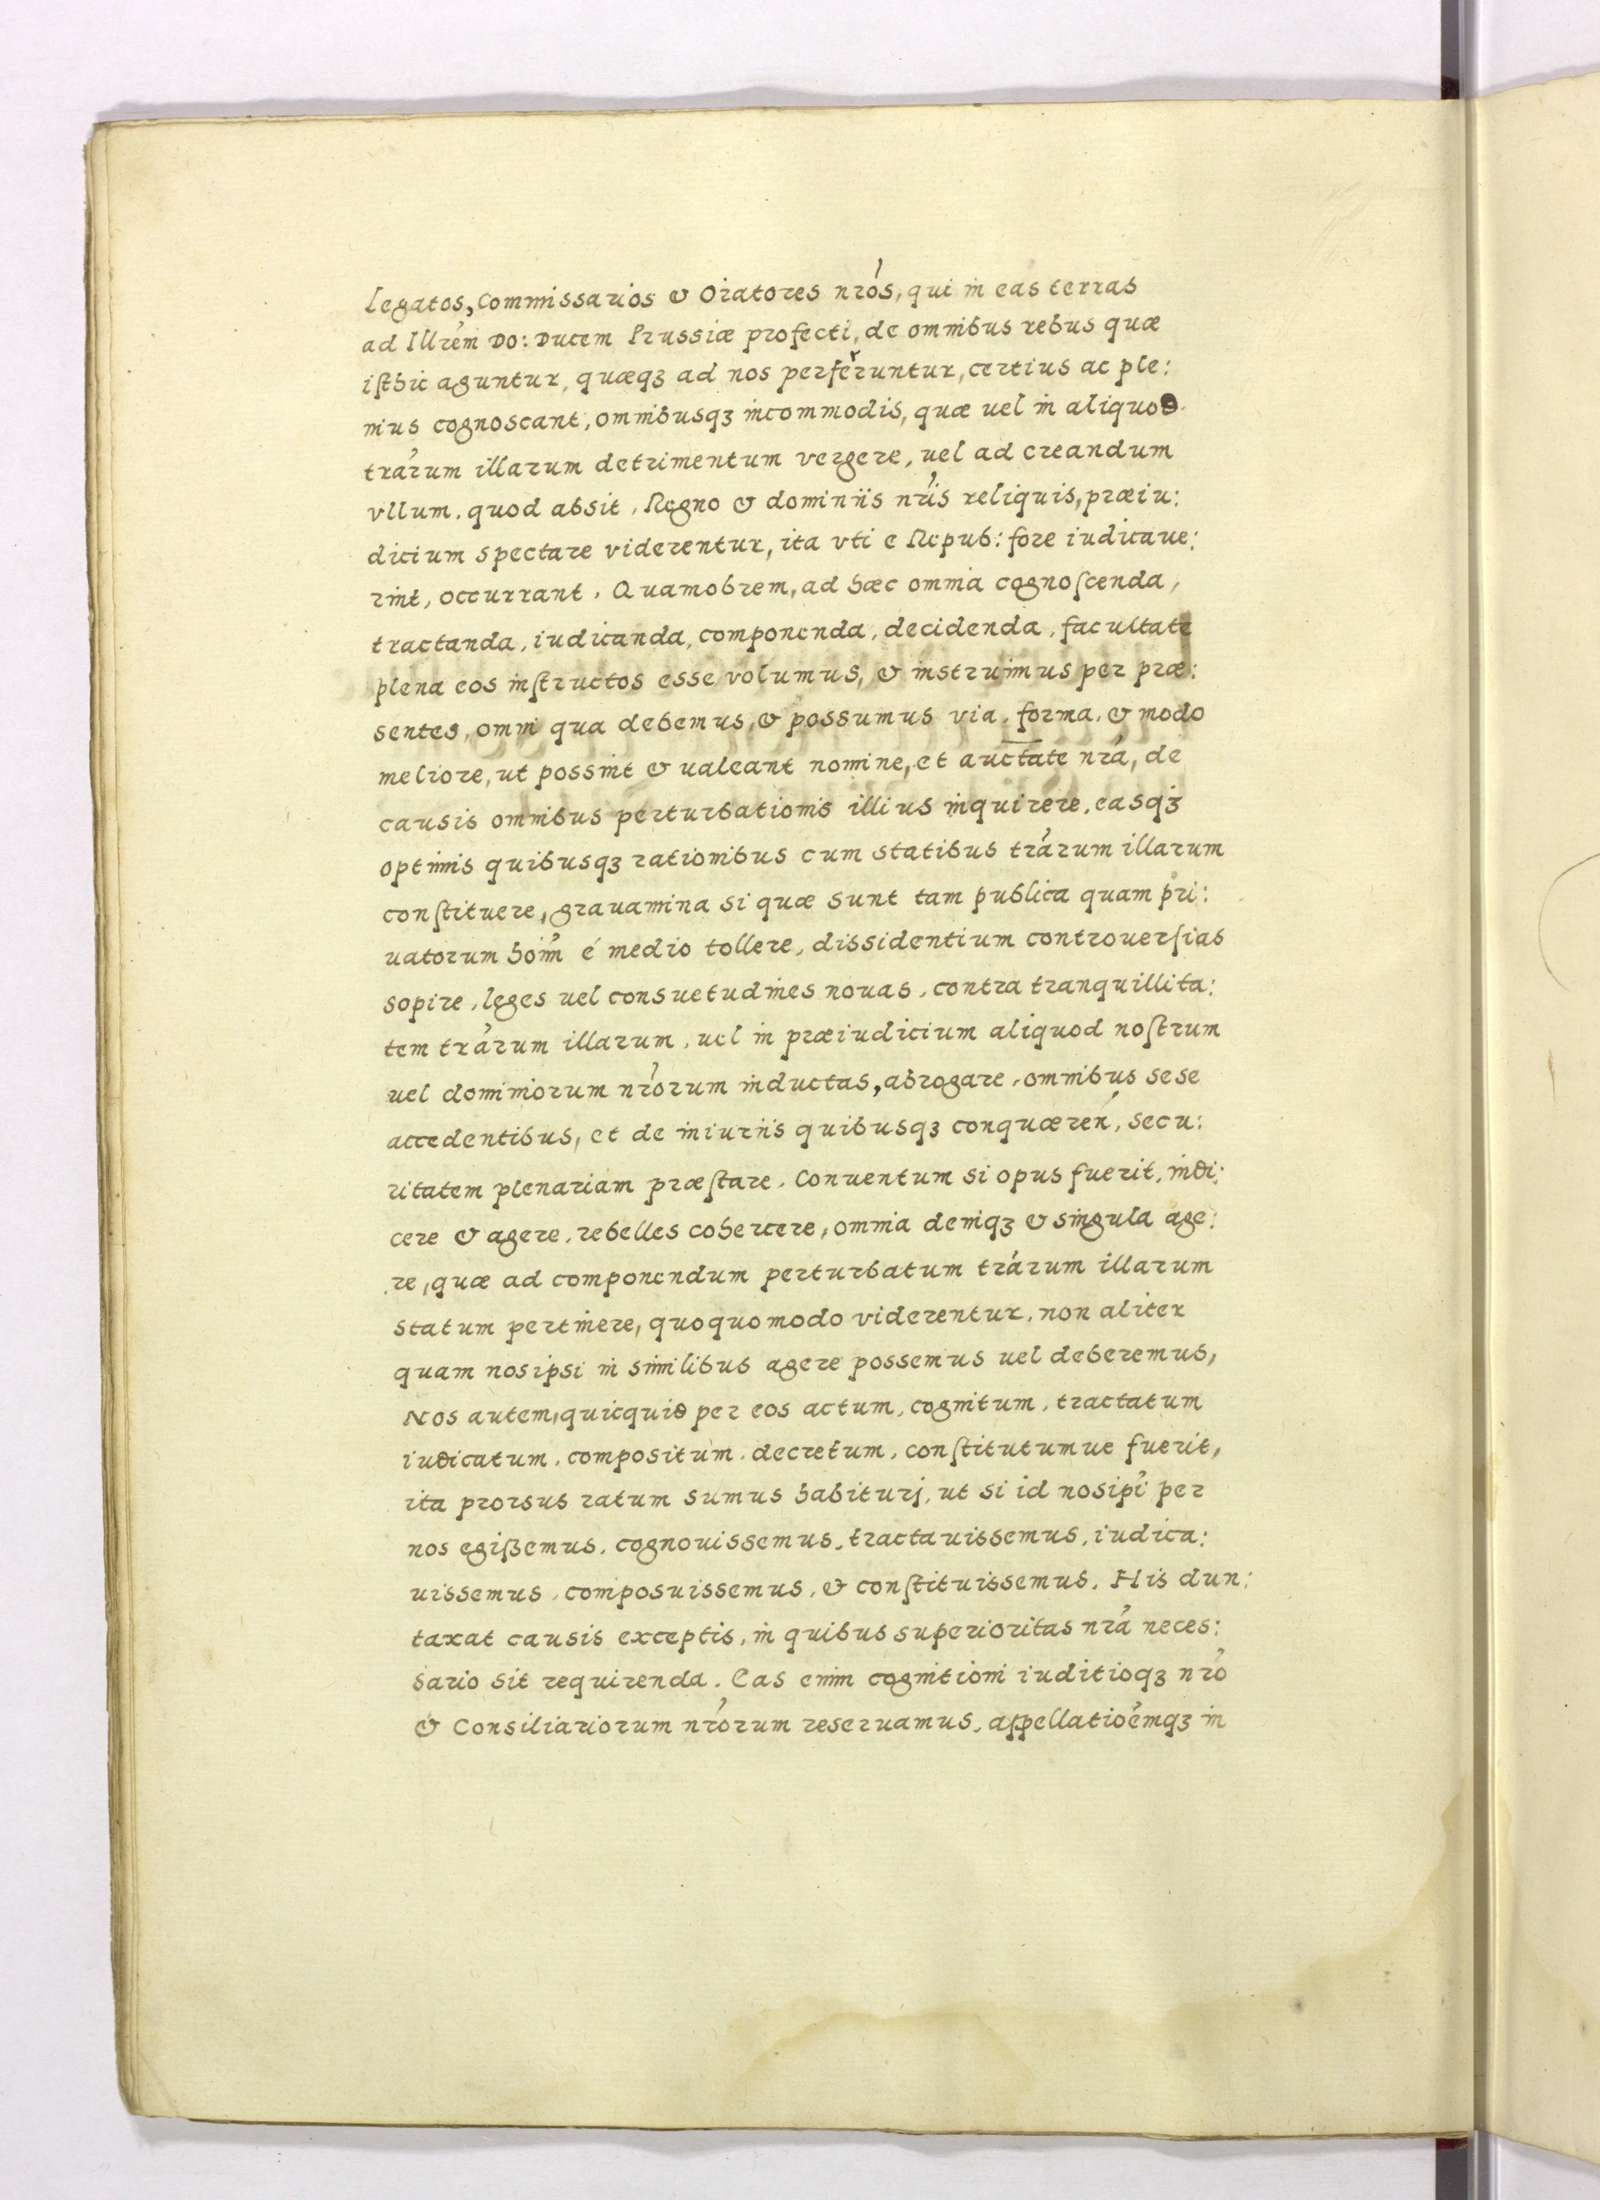 Legatos, Commissarios & Oratores nrós, qui in eas terras
ad Illrem Do: Ducem Prussiæ profecti, de omnibus rebus quæ
isthic aguntur, quæqȝ ad nos perferuntur, certius ac ple:
nius cognoscant, omnibusqȝ incommodis, quæ uel in aliquod
trárum illarum detrimentum vergere, uel ad creandum
vllum, quod absit, Regno & dominiis nris reliquis, præiu:
dicium spectare viderentur, ita vti e Repub: fore iudicaue:
rint, occurrant. Quamobrem, ad hæc omnia cognoscenda,
tractanda, iudicanda, componenda, decidenda, facultate
plena eos instructos esse volumus, & instruimus per præ:
sentes, omni qua debemus, & possumus via, forma, & modo
meliore, ut possint & ualeant nomine, et auctate nrá, de
causis omnibus perturbationis illius inquirere, easqȝ
optimis quibusqȝ rationibus cum statibus trárum illarum
constituere, grauamina si quæ sunt tam publica quam pri:
uatorum hoim é medio tollere, dissidentium controuersias
sopire, leges uel consuetudines nouas, contra tranquillita:
tem trárum illarum, uel in præiudicium aliquod nostrum
uel dominiorum nrórum inductas, abrogare, omnibus sese
accedentibus, et de iniuriis quibusqȝ conquæren, secu:
ritatem plenariam præstare. Conuentum si opus fuerit, indi:
cere & agere, rebelles cohercere, omnia deniqȝ & singula age:
re, quæ ad componendum perturbatum trárum illarum
statum pertinere, quoquomodo viderentur, non aliter
quam nosipsi in similibus agere possemus uel deberemus,
Nos autem, quicquid per eos actum, cognitum, tractatum
iudicatum, compositum, decretum, constitutumue fuerit,
ita prorsus ratum sumus habiturj, ut si id nosipi per
nos egißemus, cognouissemus, tractauissemus, iudica:
uissemus, composuissemus, & constituissemus. His dun:
taxat causis exceptis, in quibus superioritas nrá neces:
sario sit requirenda. Eas enim cognitioni iuditioqȝ nró
& Consiliariorum nrórum reseruamus, appellatioémqȝ in